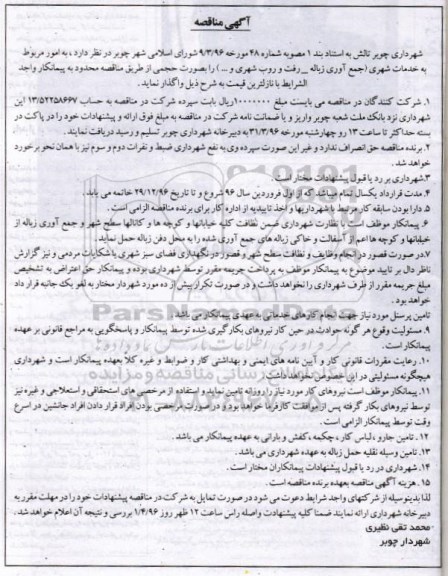 آگهی مناقصه
شهرداری چوبر تالش به استناد بند ۱ مصوبه شماره ۴۸ مورخه ۹/۳/۹۶ شورای اسلامی شهر چوبر در نظر دارد ، به امور مربوط
به خدمات شهری (جمع آوری زباله _ رفت و روب شهری و ... ) را بصورت حجمی از طریق مناقصه محدود به پیمانکار واجد
الشرایط با نازلترین قیمت به شرح ذیل واگذار نماید.
۱. شرکت کنندگان در مناقصه می بایست مبلغ ۱۰۰۰۰۰۰۰ ریال بابت سپرده شرکت در مناقصه به حساب ۱۳/۵۲۲۵۸۶۶۷ این
شهرداری نزد بانک ملت شعبه چوبر واریز و یا ضمانت نامه شرکت در مناقصه به مبلغ فوق ارائه و پیشنهادات خود را در پاکت در
بسته حداکثر تا ساعت ۱۳ رو چهارشنبه مورخه ۳۱/۳/۹۶ به دبیرخانه شهرداری چوبر تسلیم و رسید دریافت نمایند.
۲. برنده مناقصه حق انصراف ندارد و غیر این صورت سپرده وی به نفع شهرداری ضبط و نفرات دوم و سوم نیز با همان نحو برخورد
خواهد شد .
۳.شهرداری بر رد یا قبول پیشنهادات مختار است .
۴. مدت قرارداد یکسال تمام میباشد که از اول فروردین سال ۹۶ شروع و تا تاریخ ۲۹/۱۲/۹۶ خاتمه می یابد.
۵. دارا بودن سابقه کار مرتبط با شهرداریها و اخذ تاییدیه از اداره کار برای برنده مناقصه الزامی است .
۶. پیمانکار موظف است با نظارت شهرداری ضمن نظافت کلیه خیابانها و کوچه ها و کانالها سطح شهر و جمع آوری زباله از
خیابانها و کوچه ها اعم از آسفالت و خاکی زباله های جمع آوری شده را به محل دفن زباله حمل نماید.
۷.در صورت قصور در انجام وظایف و نظافت سطح شهر و قصور در نگهداری فضای سبز شهری یا شکایات مردمی و نیز گزارش
ناظر دال بر تایید موضوع به پیمانکار موظف به پرداخت جریمه مقرر توسط شهرداری بوده و پیمانکار حق اعتراض به تشخیص
مبلغ جریمه مقرر از طرف شهرداری را نخواهد داشت و در صورت تکرار بیش از ده مورد شهردار مختار به لغو یک جانبه قرار داد
خواهد بود .
تامین پرسنل مورد نیاز جهت انجام کارهای خدماتی به عهده پیمانکار می باشد .
۹. مسئولیت وقوع هر گونه حوادث در حین کار نیروهای بکار گیری شده توسط پیمانکار و پاسخگویی به مراجع قانونی بر عهده
پیمانکار است.
۱۰. رعایت مقررات قانونی کار و آیین نامه های ایمنی و بهداشتی کار و ضوابط و غیره کلا بعهده پیمانکار است و شهرداری
هیچگونه مسئولیتی در این خصوص نخواهد داشت.
۱۱. پیمانکار موظف است نیروهای کار مورد نیاز را روزانه تامین نماید و استفاده از مرخصی های استحقاقی و استعلاجی و غیره نیز
توسط نیروهای بکار گرفته پس از موافقت کارفرما خواهد بود و در صورت مرخصی بودن افراد قرار دادن افراد جانشین در اسرع
وقت توسط پیمانکار الزامی است .
۱۲ . تامین جارو ، لباس کار ، چکمه ، کفش و بارانی به عهده پیمانکار می باشد .
۱۳ . تامین وسیله نقلیه حمل زباله به عهده شهرداری می باشد .
۱۴ . شهرداری در رد یا قبول پیشنهادات پیمانکاران مختار است .
۱۵ . هزینه آگهی مناقصه بعهده برنده مناقصه است .
لذا بدینوسیله از شرکتهای واجد شرایط دعوت می شود در صورت تمایل به شرکت در مناقصه پیشنهادات خود را در مهلت مقرر به
دبیرخانه شهرداری ارائه نمایند ضمنا کلیه پیشنهادت واصله راس ساعت ۱۲ ظهر روز ۱/۴/۹۶ بررسی و نتیجه آن اعلام خواهد شد .
محمد تقی نظیری
شهردار چوبر